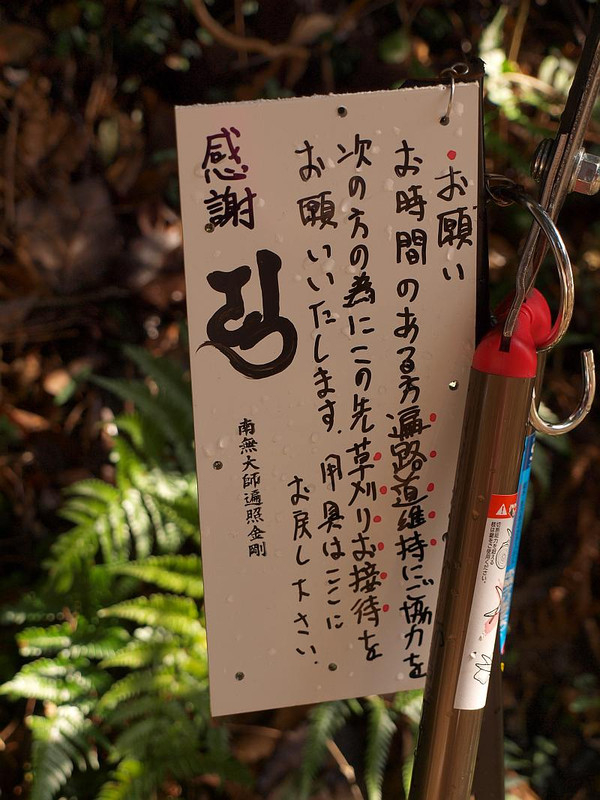 お願い
お時間のある方遍路道維持にご協力を
次の方の為にこの先草刈りお接待を
お願いいたします.用具はここに
お戻し下さい.
感謝
南無大師遍照金剛